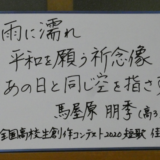 雨に濡れ
平和を願う祈念像
あの日と同じ空を指さす
馬屋原 朋季(高3
全国高校生創作コンテスト2020短歌 佳